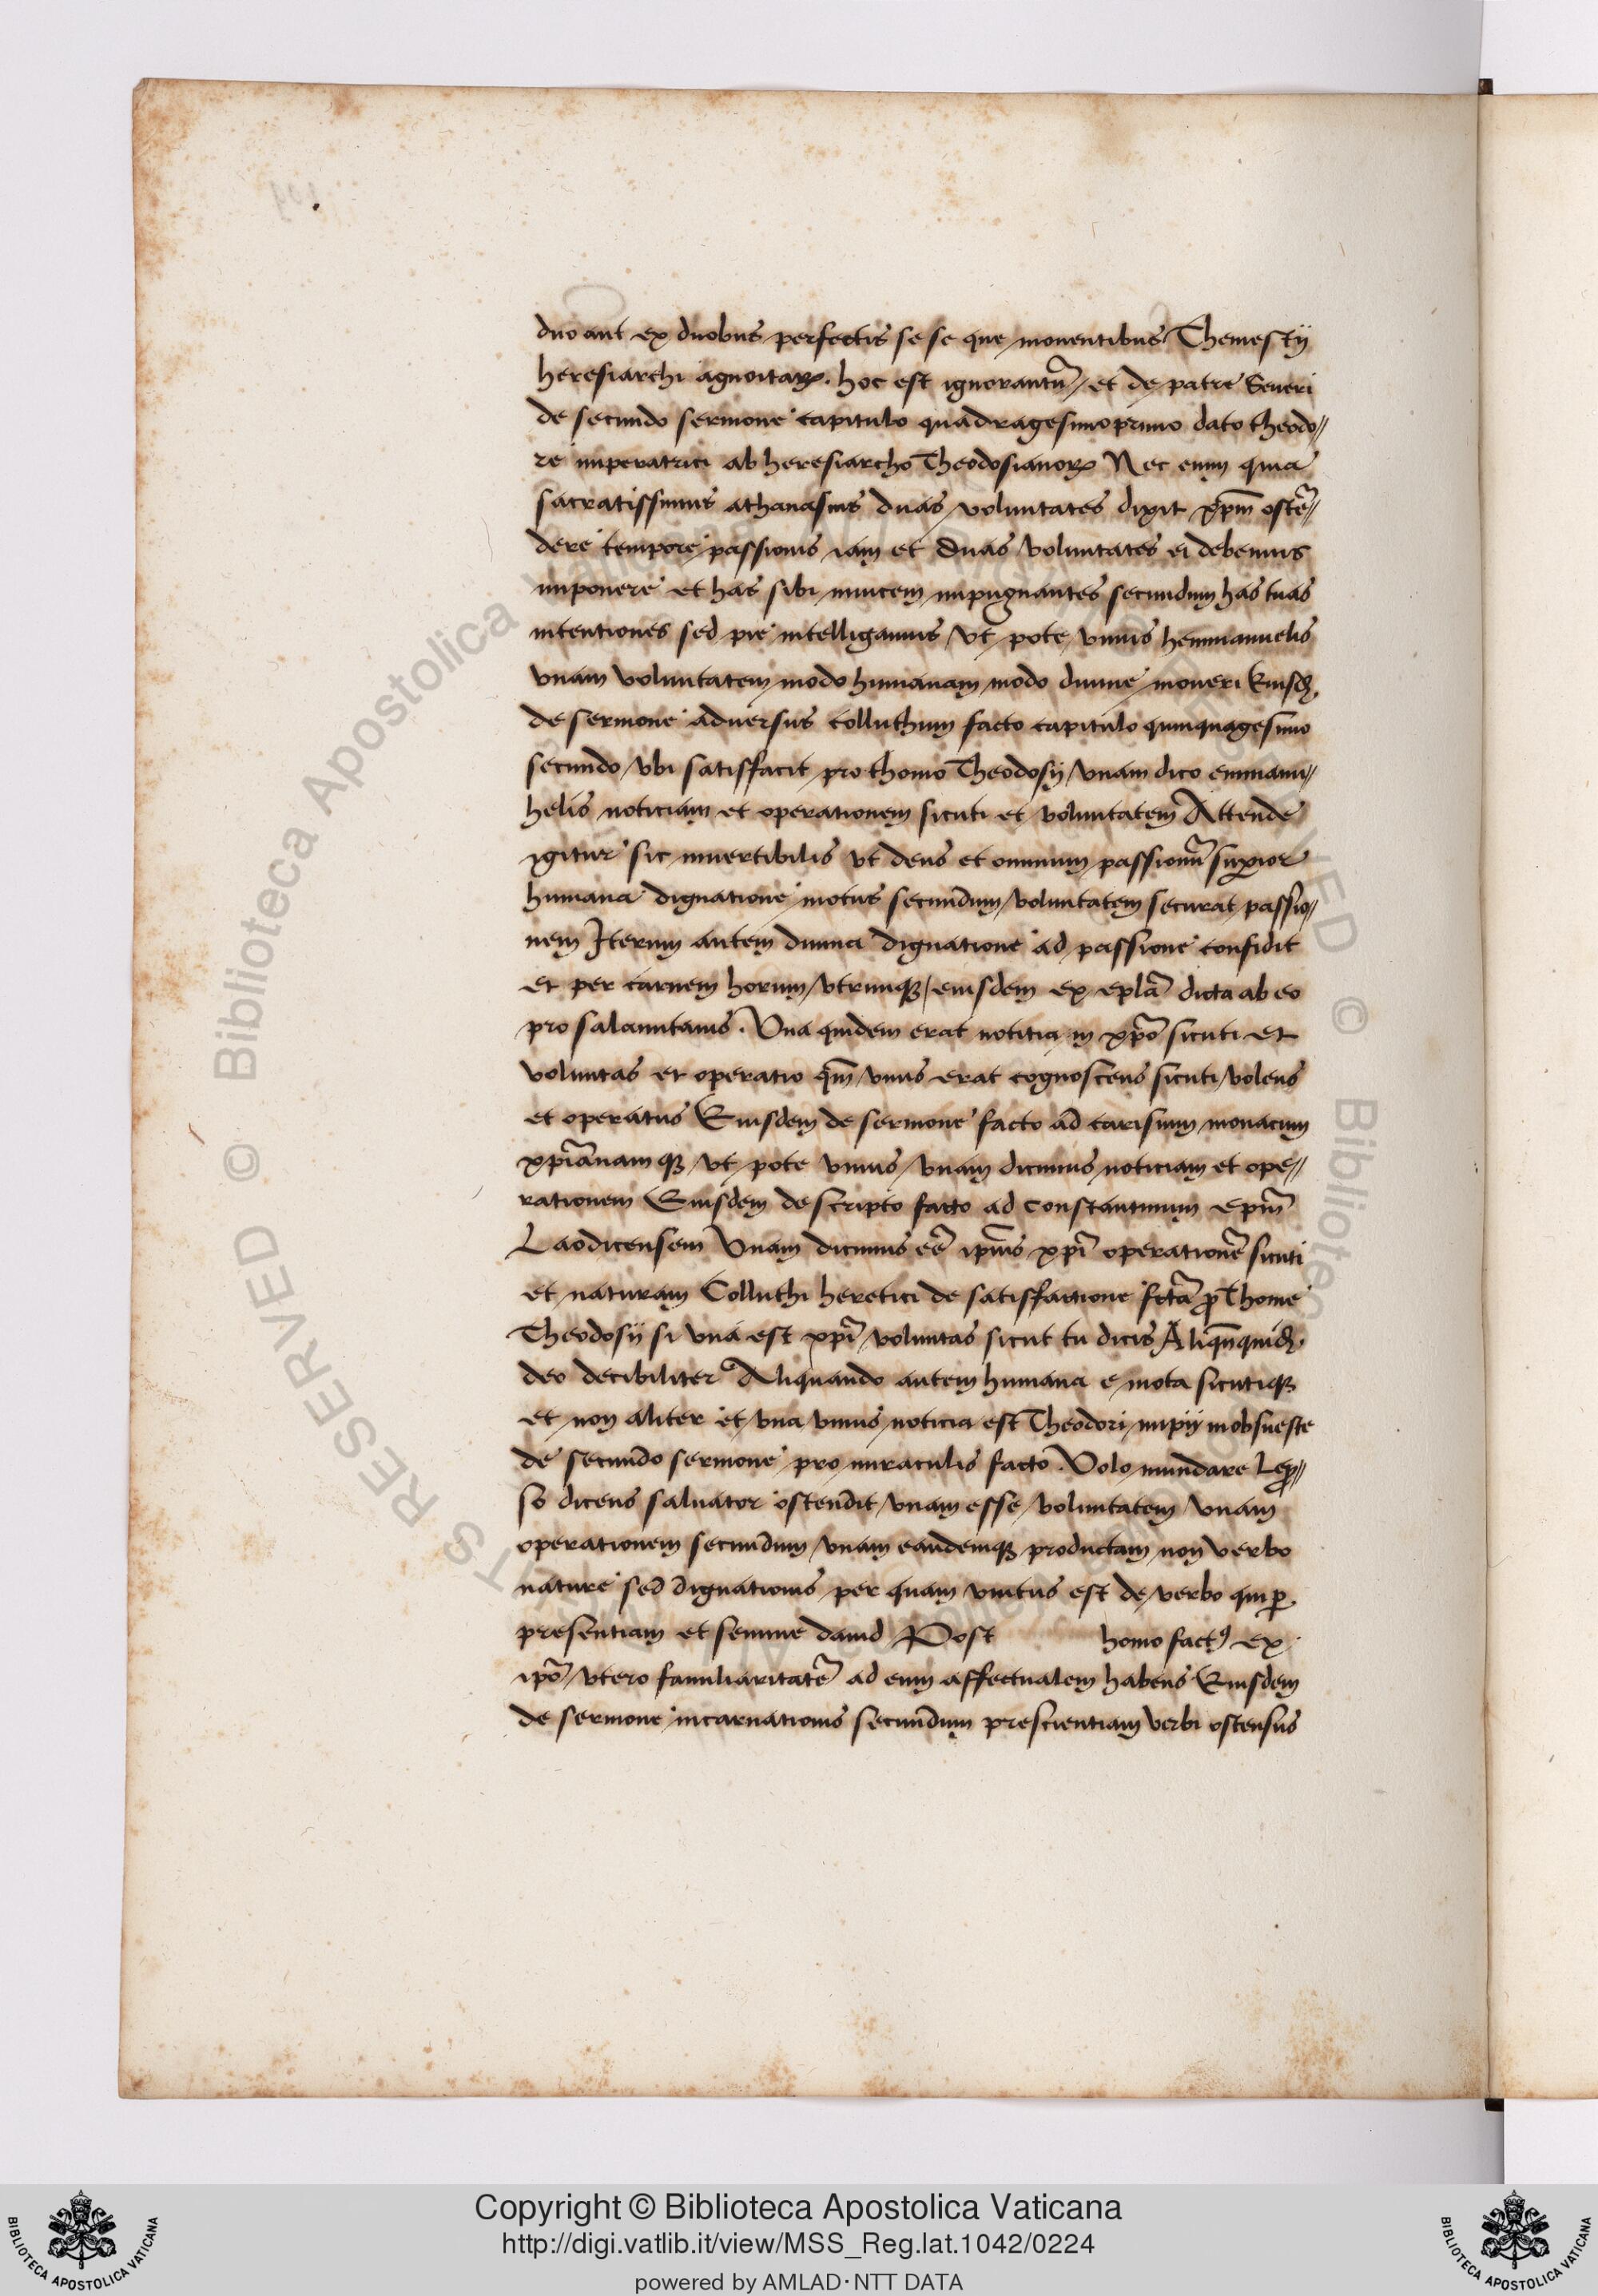 duo aut ex duobus perfectis se se que mouentibus Themestij
heresiarchi agnoitaꝝ. hoc est ignorantũ et de patre Seueri
de secundo sermone capitulo quadragesimoprimo dato theodo//
re imperatrici ab heresiarcho Theodosianoꝝ Nec enim quia
sacratissimus athanasius duas voluntates dixit xp̃m ostẽ//
dere tempore passionis iam et duas voluntates ei debemus
imponere et has sibi inuicem impugnantes secundum has tuas
intentiones sed pie intelligamus vt pote vnius hemmanuelis
vnam voluntatem modo humanam modo diuine moueri Eiusdẽ
de sermone aduersus colluthum facto capitulo quinquagesimo
secundo vbi satisfacit pro thomo Theodosij vnam dico emmanu//
helis noticiam et operationem sicuti et voluntatem Attende
igitur sic inuertibilis vt deus et omnium passionũ suꝑior
humana dignatione motus secundum voluntatem securat passio//
nem Iterum autem diuina dignatione ad passione confidit
et per carnem horum vtrumqꝫ eiusdem ex ep̃la dicta ab eo
pro salamitanis. Vna quidem erat notitia in xp̃o sicuti et
voluntas et operatio qm̃ vnus erat cognoscens sicuti volens
et operatus Eiusdem de sermone facto ad carisium monacum
xp̃ianam qꝫ vt pote vnius vnam dicimus noticiam et ope//
rationem Eiusdem de scripto facto ad constantinum ep̃m
Laodicensem Vnam dicimus eẽ ip̃ius xp̃i operationẽ sicuti
et naturam Colluthi heretici de satisfactione fcta ꝓ Thome
Theodosij si vna est xp̃i voluntas sicut tu dicis Aliqñ quidẽ
deo decibiliter Aliquando autem humana e mota sicutiqꝫ
et non aliter et vna vnius noticia est Theodori impij mobsueste
de secundo sermone pro miraculis facto. Volo mundare Lepꝛo//
so dicens saluator ostendit vnam esse voluntatem vnam
operationem secundum vnam eandemqꝫ productam non verbo
nature sed dignationis per quam vnitus est de verbo qui ꝑ
presentiam et semine dauid Post homo factꝰ ex
ip̃o vtero familiaritatẽ ad eum affectualem habens Eiusdem
de sermone incarnationis secundum prescientiam verbi ostensus
Copyright © Biblioteca Apostolica Vaticana
http://digi.vatlib.it/view/MSS_Reg.lat.1042/0224
powered by AMLAD·NTT DATA
BIBLIOTECA APOSTOLICA VATICANA
BIBLIOTECA APOSTOLICA VATICANA